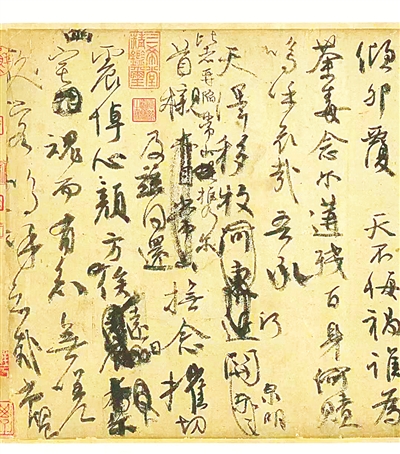 傾卵覆 天不悔禍誰為
荼毒念爾遘殘百身何贖
嗚呼哀哉吾承
天澤移牧河東近河關
泉明
比者再陷常山攜爾
首櫬 撫念摧切
及茲同還
震悼心顏方俟遠日
宅魂而有知無嗟
久客嗚呼哀哉尚饗